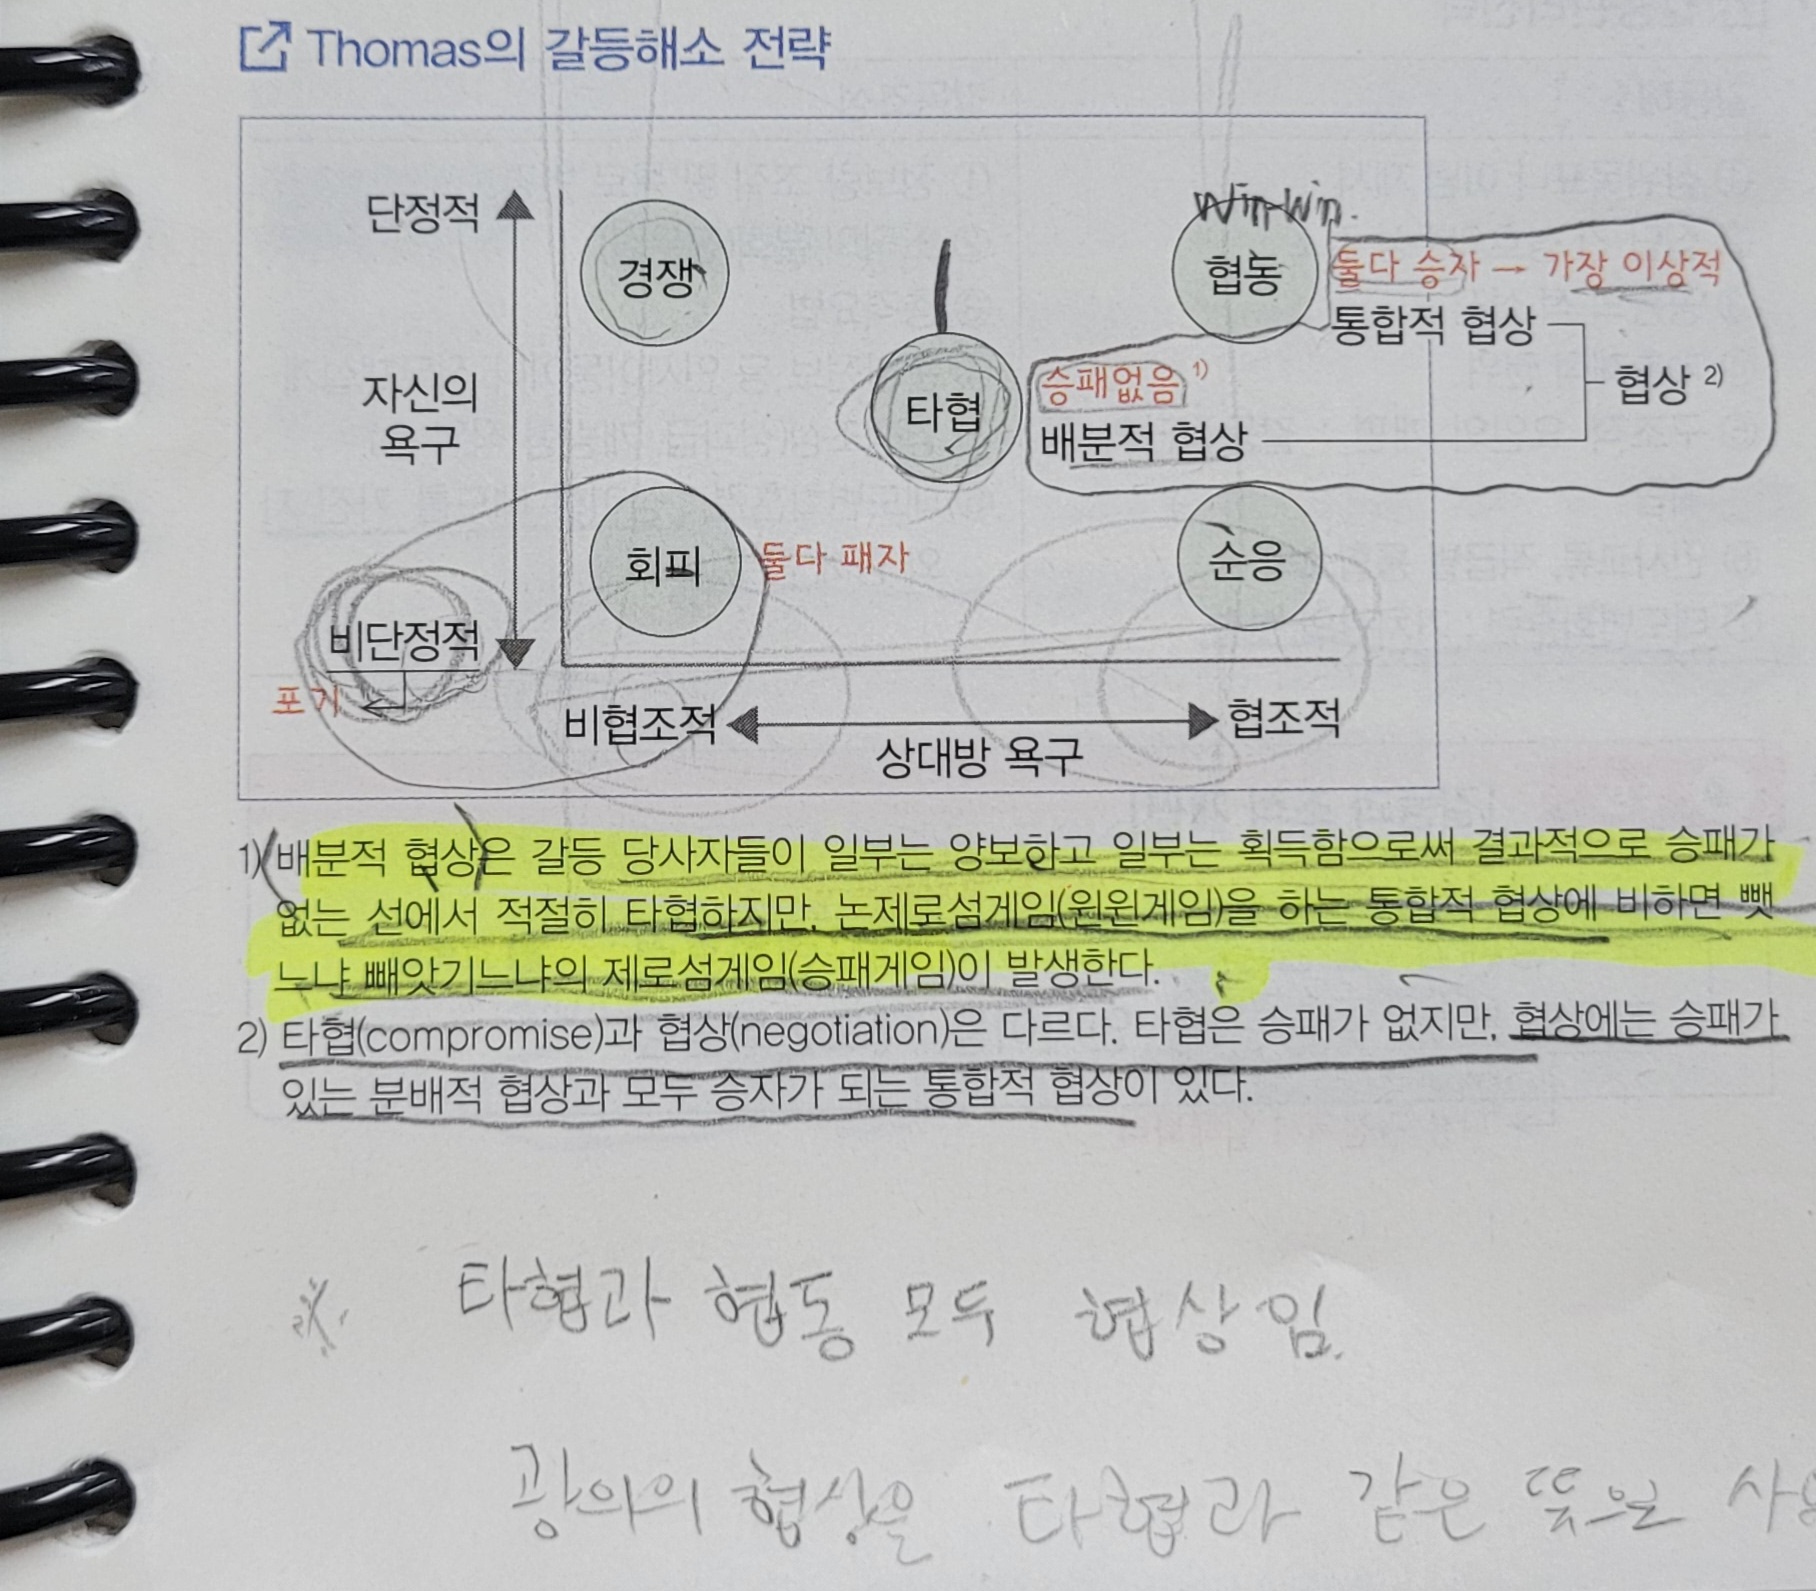 Thomas의 갈등해소 전략
단정적
자신의
욕구
비단정적
포기
경쟁
win-win.
협동
둘다 승자 → 가장 이상적
통합적 협상
협상 2)
타협
승패없음 1)
배분적 협상
회피
둘다 패자
순응
비협조적
협조적
상대방 욕구
1) 배분적 협상은 갈등 당사자들이 일부는 양보하고 일부는 획득함으로써 결과적으로 승패가
없는 선에서 적절히 타협하지만, 논제로섬게임(윈윈게임)을 하는 통합적 협상에 비하면 뺏
느냐 빼앗기느냐의 제로섬게임(승패게임)이 발생한다.
2) 타협(compromise)과 협상(negotiation)은 다르다. 타협은 승패가 없지만, 협상에는 승패가
있는 분배적 협상과 모두 승자가 되는 통합적 협상이 있다.
※ 타협과 협동 모두 협상임.
광의의 협상을 타협과 같은 뜻으로